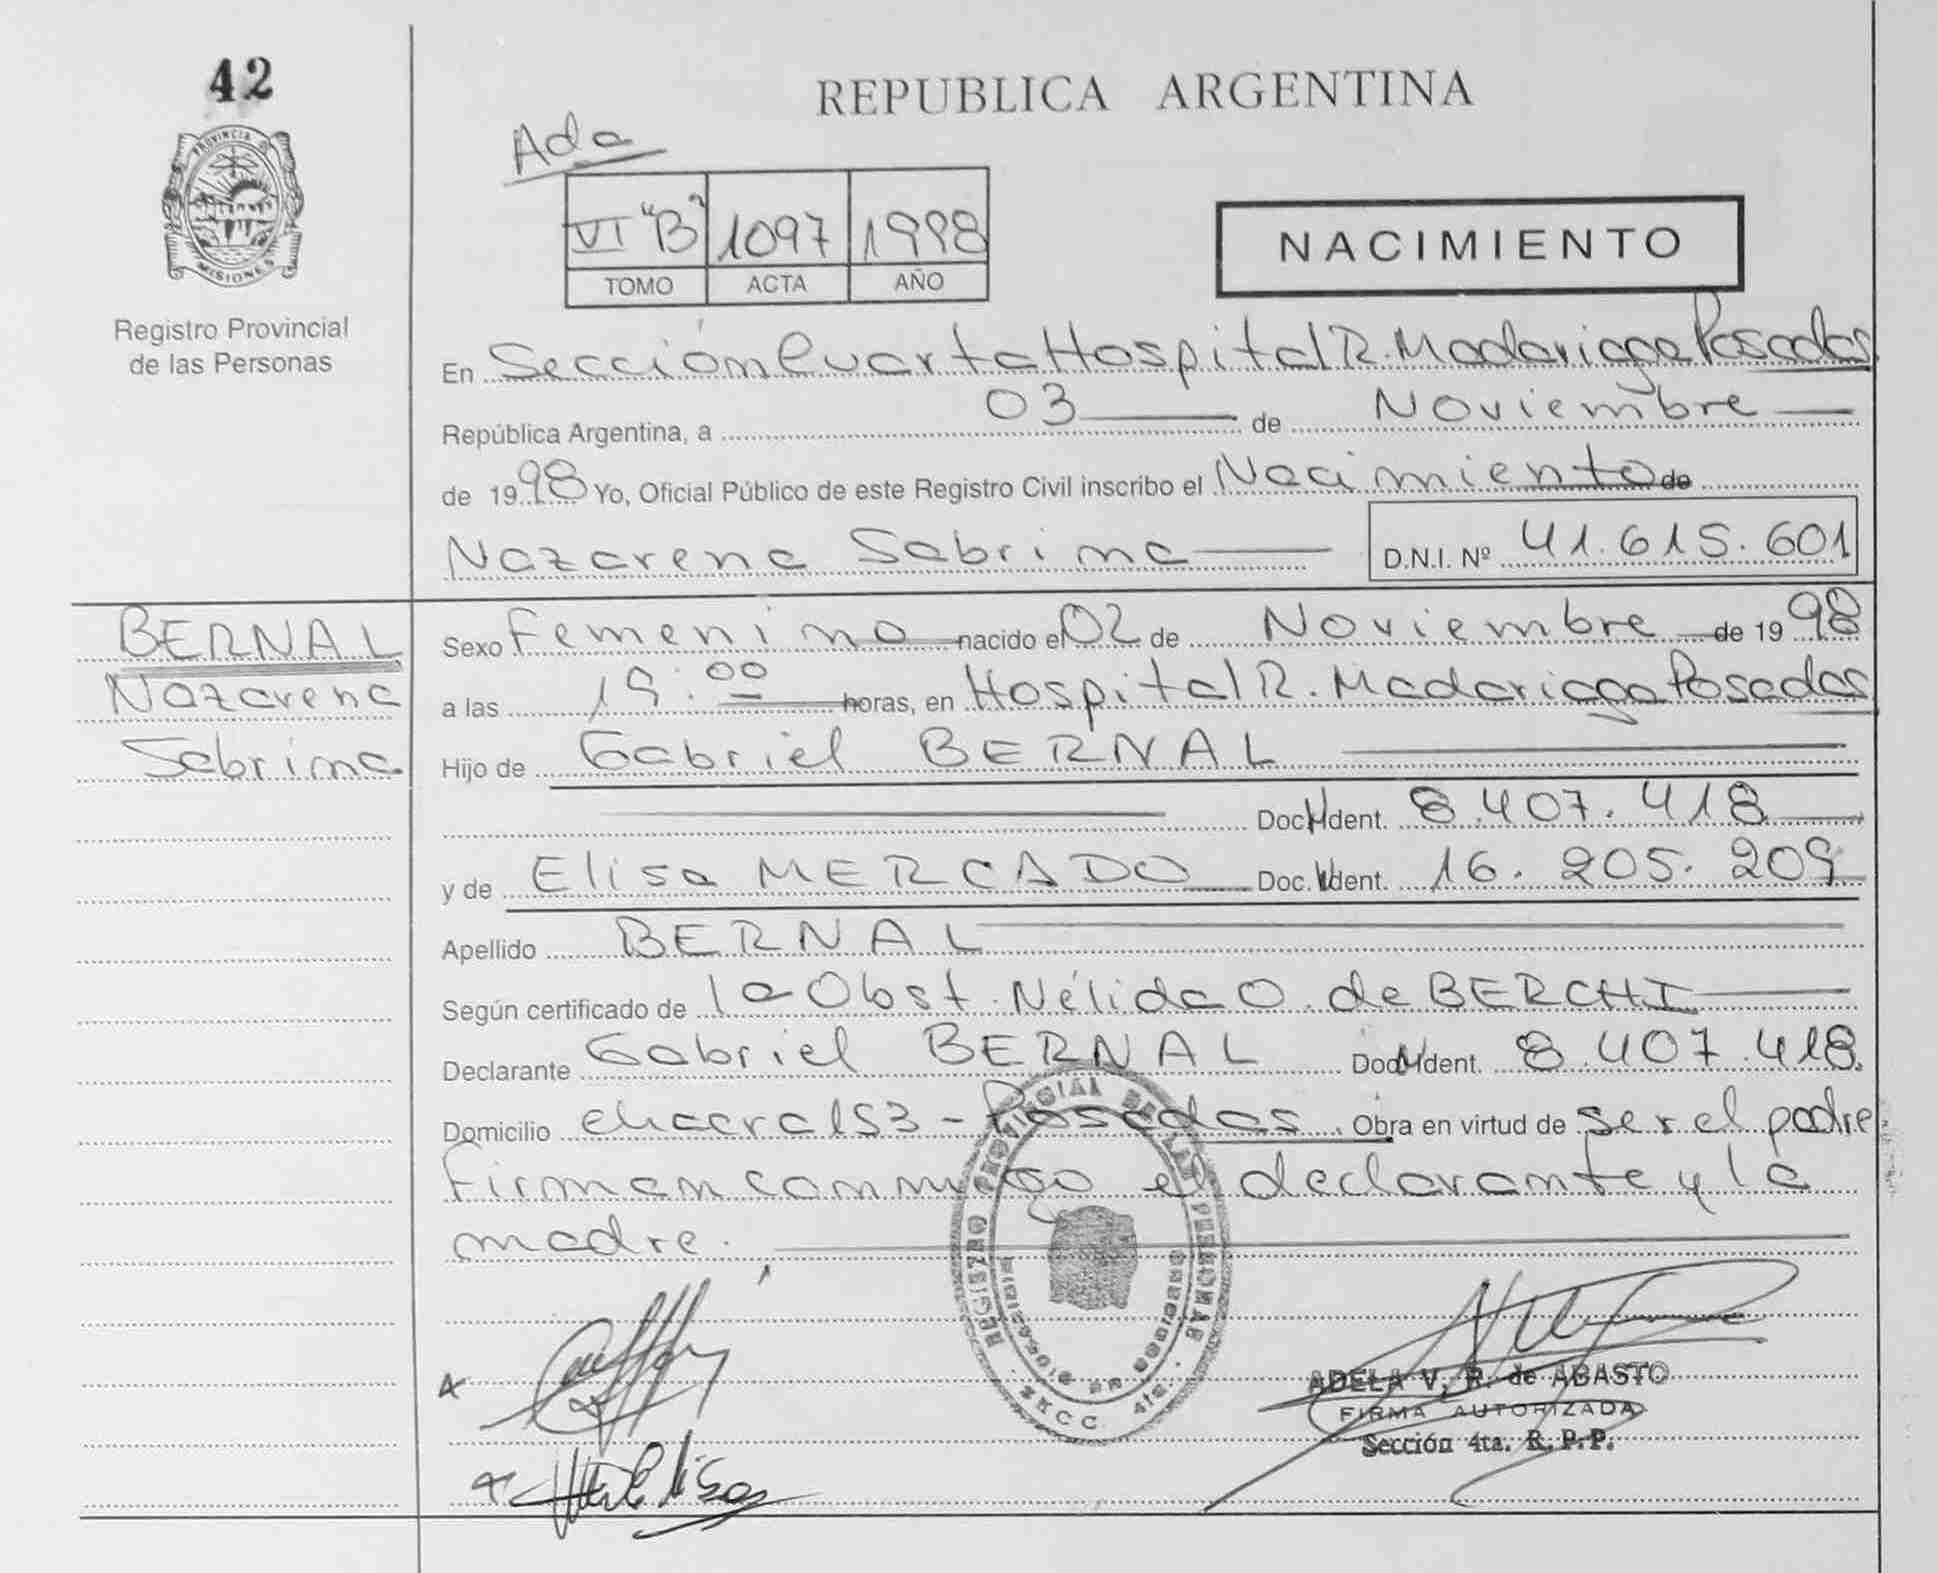 42
PROVINCIA
MISIONES
Registro Provincial
de las Personas
REPUBLICA ARGENTINA
Ada
VI "B" 1097 1998
TOMO ACTA AÑO
NACIMIENTO
En Sección Cuarta Hospital R. Madariaga Posadas
República Argentina, a 03 de Noviembre
de 1998 Yo, Oficial Público de este Registro Civil inscribo el Nacimiento de
Nazarena Sabrina D.N.I. Nº 41.615.601
BERNAL
Nazarena
Sabrina
Sexo Femenino nacido el 02 de Noviembre de 1998
a las 19:00 horas, en Hospital R. Madariaga Posadas
Hijo de Gabriel BERNAL
Doc. Ident. 8.407.418
y de Elisa MERCADO Doc. Ident. 16.205.209
Apellido BERNAL
Según certificado de la Obst. Nélida O. de BERCHI
Declarante Gabriel BERNAL Doc. Ident. 8.407.418.
Domicilio chacra 153 - Posadas. Obra en virtud de ser el padre
Firman conmigo el declarante y la
madre.
REGISTRO PROVINCIAL DE LAS PERSONAS
SECC. 4ta.
ADELA V. R. de ABASTO
FIRMA AUTORIZADA
Sección 4ta. R.P.P.